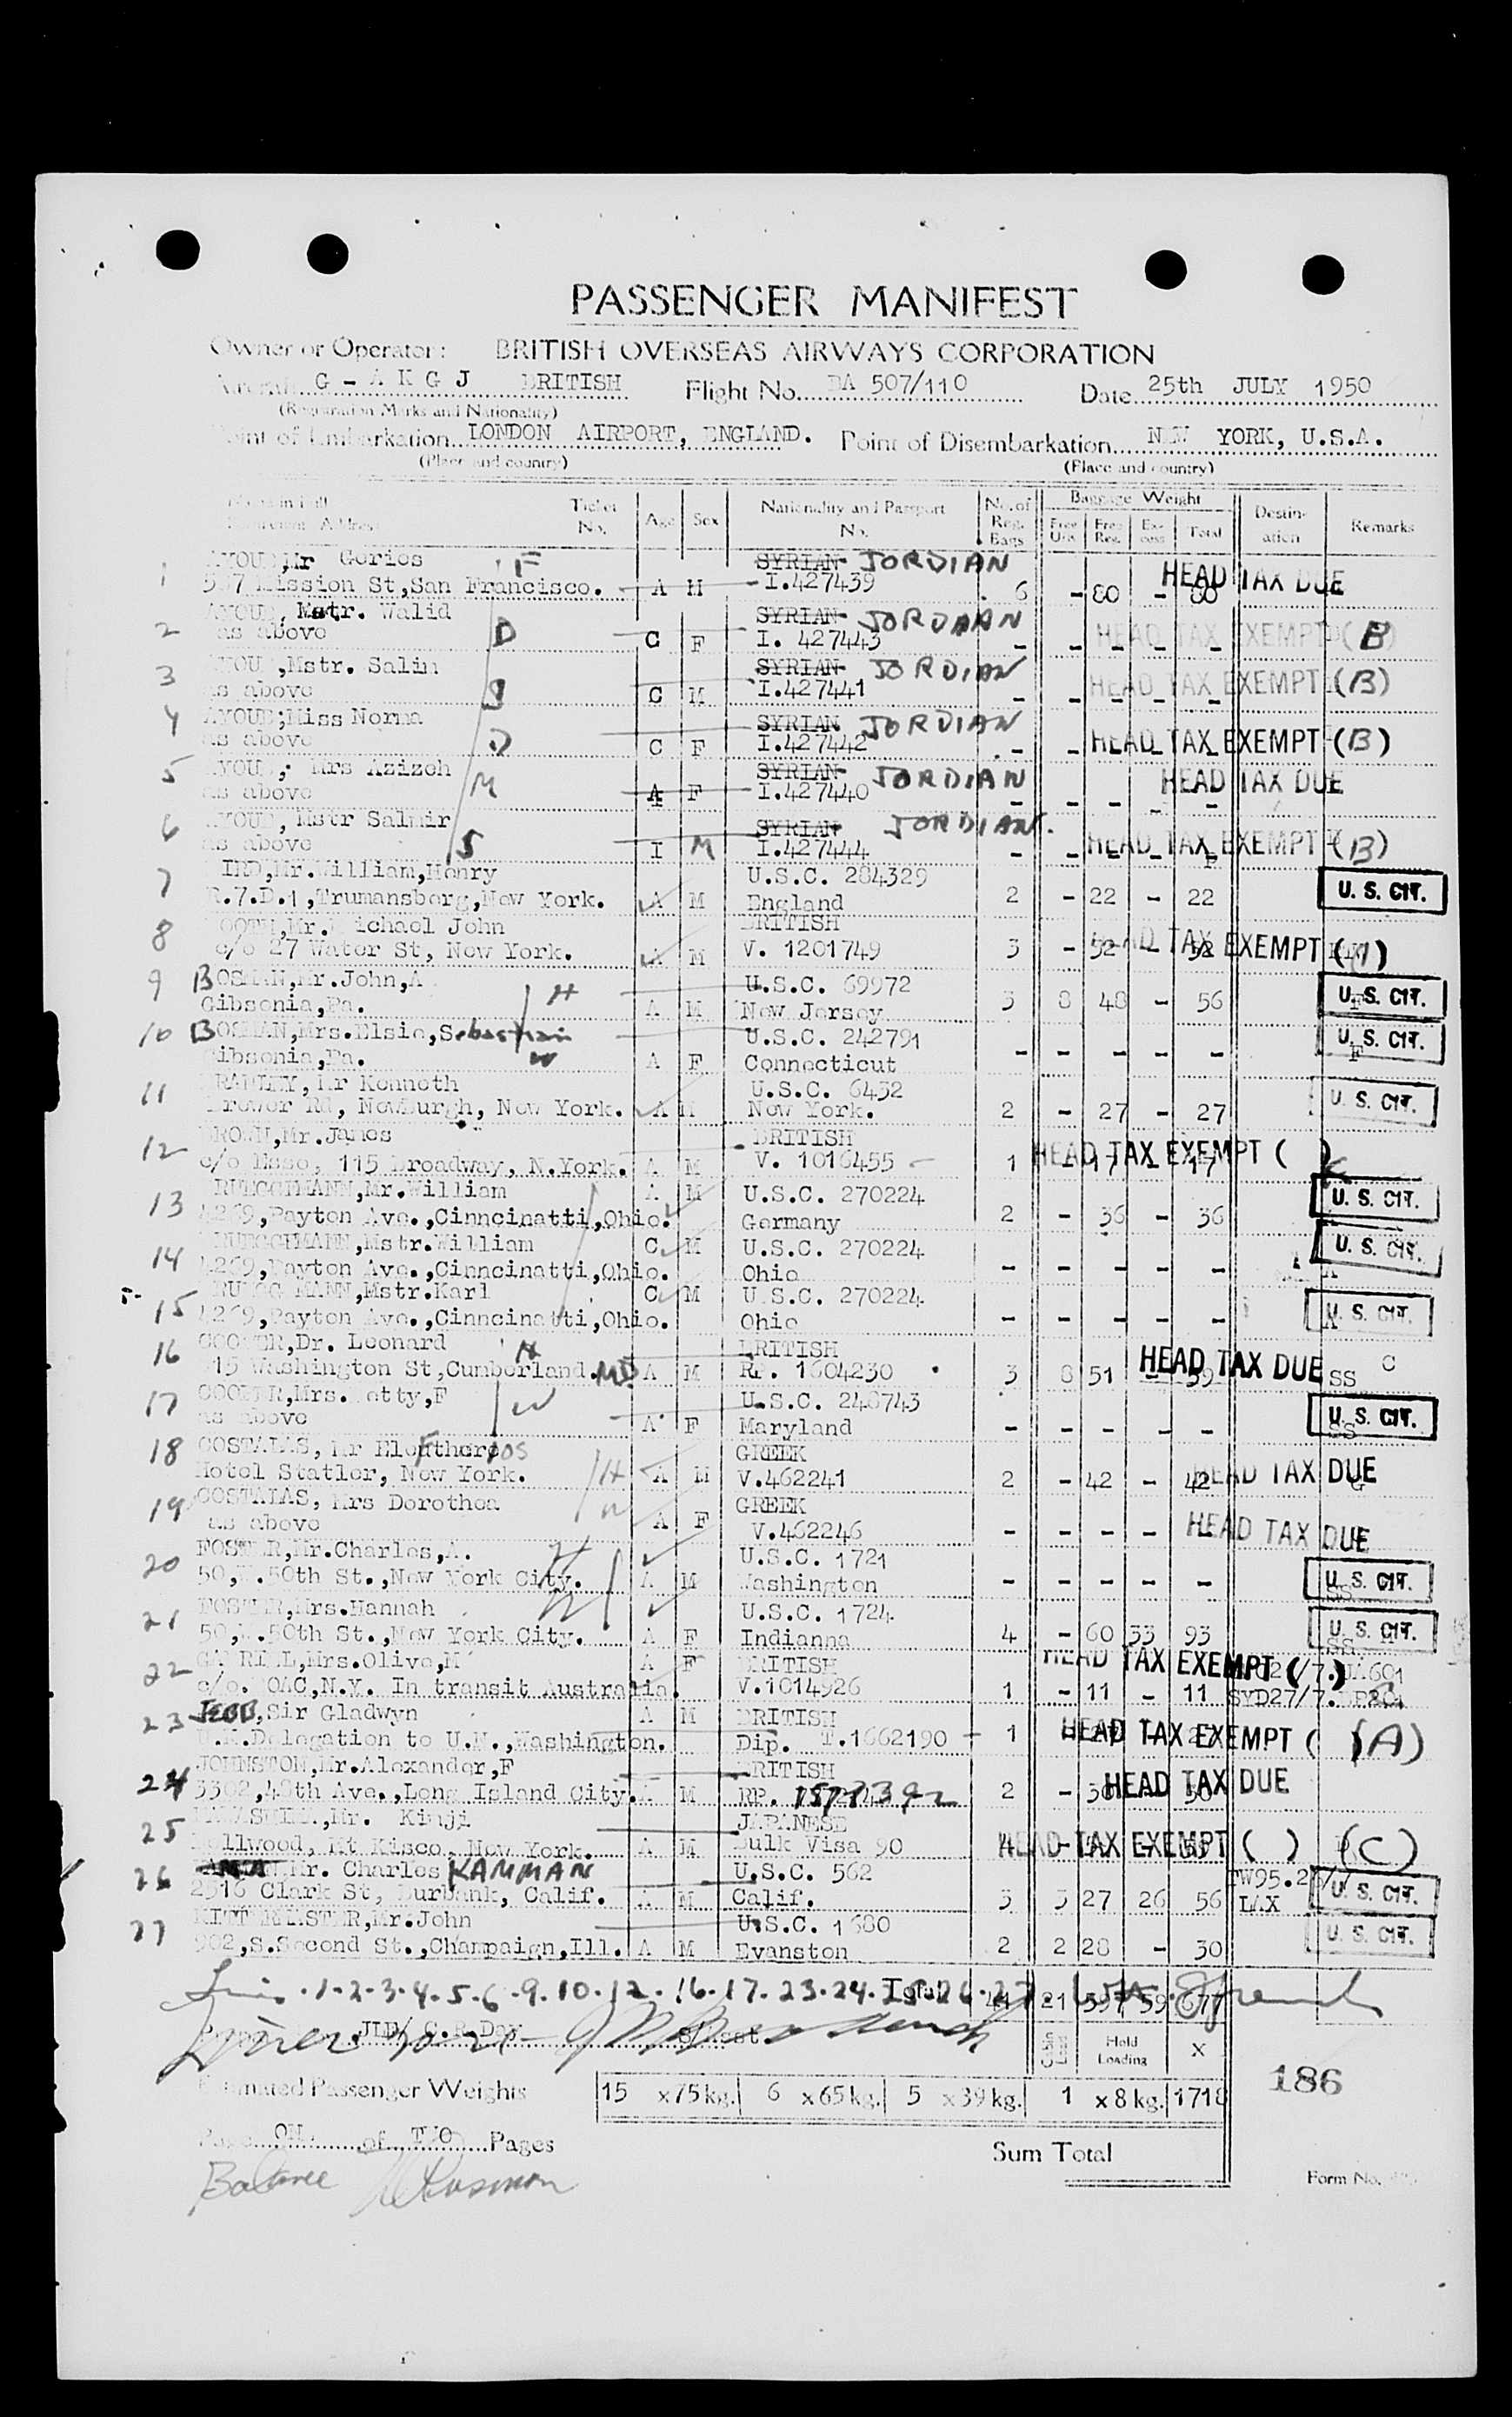 PASSENGER MANIFEST
Owner or Operator: BRITISH OVERSEAS AIRWAYS CORPORATION
G - A K G J BRITISH Flight No. BA 507/110 Date 25th JULY 1950
(Registration Marks and Nationality)
Point of Embarkation LONDON AIRPORT, ENGLAND. Point of Disembarkation NEW YORK, U.S.A.
(Place and country) (Place and country)
Ticket No. Age Sex Nationality and Passport No. No. of Reg. Bags Baggage Weight Free Reg. Excess Total Destination Remarks
1 AYOUB, Mr Gorios F SYRIAN JORDIAN
Mission St, San Francisco. A M I.427439 6 - 80 - 80 HEAD TAX DUE
2 AYOUB, Mstr. Walid SYRIAN JORDAAN
as above D C F I. 427443 - - - - - HEAD TAX EXEMPT (B)
3 AYOUB, Mstr. Salim SYRIAN JORDIAN
as above S C M I.427441 - - - - - HEAD TAX EXEMPT (B)
4 AYOUB; Miss Norma SYRIAN JORDIAN
as above D C F I.427442 - - - - - HEAD TAX EXEMPT (B)
5 AYOUB, Mrs Azizeh SYRIAN JORDIAN
as above M A F I.427440 - - - - - HEAD TAX DUE
6 AYOUB, Mstr Salmir SYRIAN JORDIAN.
as above S I M I.427444 - - - - HEAD TAX EXEMPT (B)
7 Mr. William, Henry U.S.C. 284329
R.7.D.1, Trumansberg, New York. A M England 2 - 22 - 22 U. S. CIT.
8 Mr. Michael John BRITISH
c/o 27 Water St, New York. A M V. 1201749 3 - 52 - 52 HEAD TAX EXEMPT
9 BOSMAN, Mr. John, A H U.S.C. 69972
Gibsonia, Pa. A M New Jersey 3 8 48 - 56 U. S. CIT.
10 BOSMAN, Mrs. Elsie, Sebastian U.S.C. 242791
Gibsonia, Pa. W A F Connecticut - - - - - U. S. CIT.
11 BRADLEY, Mr Kenneth U.S.C. 6452
Brewer Rd, Newburgh, New York. A M New York. 2 - 27 - 27 U. S. CIT.
12 BROWN, Mr. James BRITISH
c/o Esso, 115 Broadway, N.York. A M V. 1016455 1 - 17 - 17 HEAD TAX EXEMPT ( )
13 BRUEGGEMANN, Mr. William A M U.S.C. 270224
4269, Payton Ave., Cinncinatti, Ohio. Germany 2 - 36 - 36 U. S. CIT.
14 BRUEGGEMANN, Mstr. William C M U.S.C. 270224
4269, Payton Ave., Cinncinatti, Ohio. Ohio - - - - - U. S. CIT.
15 Mstr. Karl C M U.S.C. 270224
4269, Payton Ave., Cinncinatti, Ohio. Ohio - - - - - U. S. CIT.
16 COOPER, Dr. Leonard H BRITISH
Washington St, Cumberland. MD A M RP. 1604230 3 8 51 - 59 HEAD TAX DUE SS C
17 COOPER, Mrs. Betty, F W U.S.C. 248743
as above A F Maryland - - - - - U. S. CIT. SS
18 COSTALAS, Mr GREEK
Hotel Statler, New York. H A M V.462241 2 - 42 - 42 HEAD TAX DUE
19 COSTALAS, Mrs Dorothea W GREEK
as above A F V.462246 - - - - - HEAD TAX DUE
20 FOSTER, Mr. Charles, A. H U.S.C. 1721
50, W.50th St., New York City. A M Washington - - - - - U. S. CIT. SS
21 FOSTER, Mrs. Hannah W U.S.C. 1724
50, W.50th St., New York City. A F Indianna 4 - 60 33 93 U. S. CIT. SS
22 Mrs. Olive, M A F BRITISH HEAD TAX EXEMPT
c/o. BOAC, N.Y. In transit Australia. V.1014926 1 - 11 - 11 SYD27/7.
23 JEBB, Sir Gladwyn A M BRITISH
U.K. Delegation to U.N., Washington. Dip. T.1662190 1 HEAD TAX EXEMPT (A)
24 JOHNSTON, Mr. Alexander, F BRITISH
3302, 48th Ave., Long Island City. A M RP. 2 - HEAD TAX DUE
25 Mr. Kinji JAPANESE
Mt Kisco, New York. A M Bulk Visa 90 4 HEAD TAX EXEMPT ( ) (C)
26 Mr. Charles KAMMAN U.S.C. 562
2516 Clark St, Burbank, Calif. A M Calif. 3 3 27 26 56 LAX U. S. CIT.
27 Mr. John U.S.C. 1680
902, S.Second St., Champaign, Ill. A M Evanston 2 2 28 - 30 U. S. CIT.
1-2-3-4-5-6-9-10-12-16-17-23-24-25-26-27. Total 41 21 597 59 677
C.R.Day
Hold Loading X
Estimated Passenger Weights 15 x75kg. 6 x65kg. 5 x39kg. 1 x8kg. 1718
186
Page ONE of TWO Pages
Sum Total
Form No.